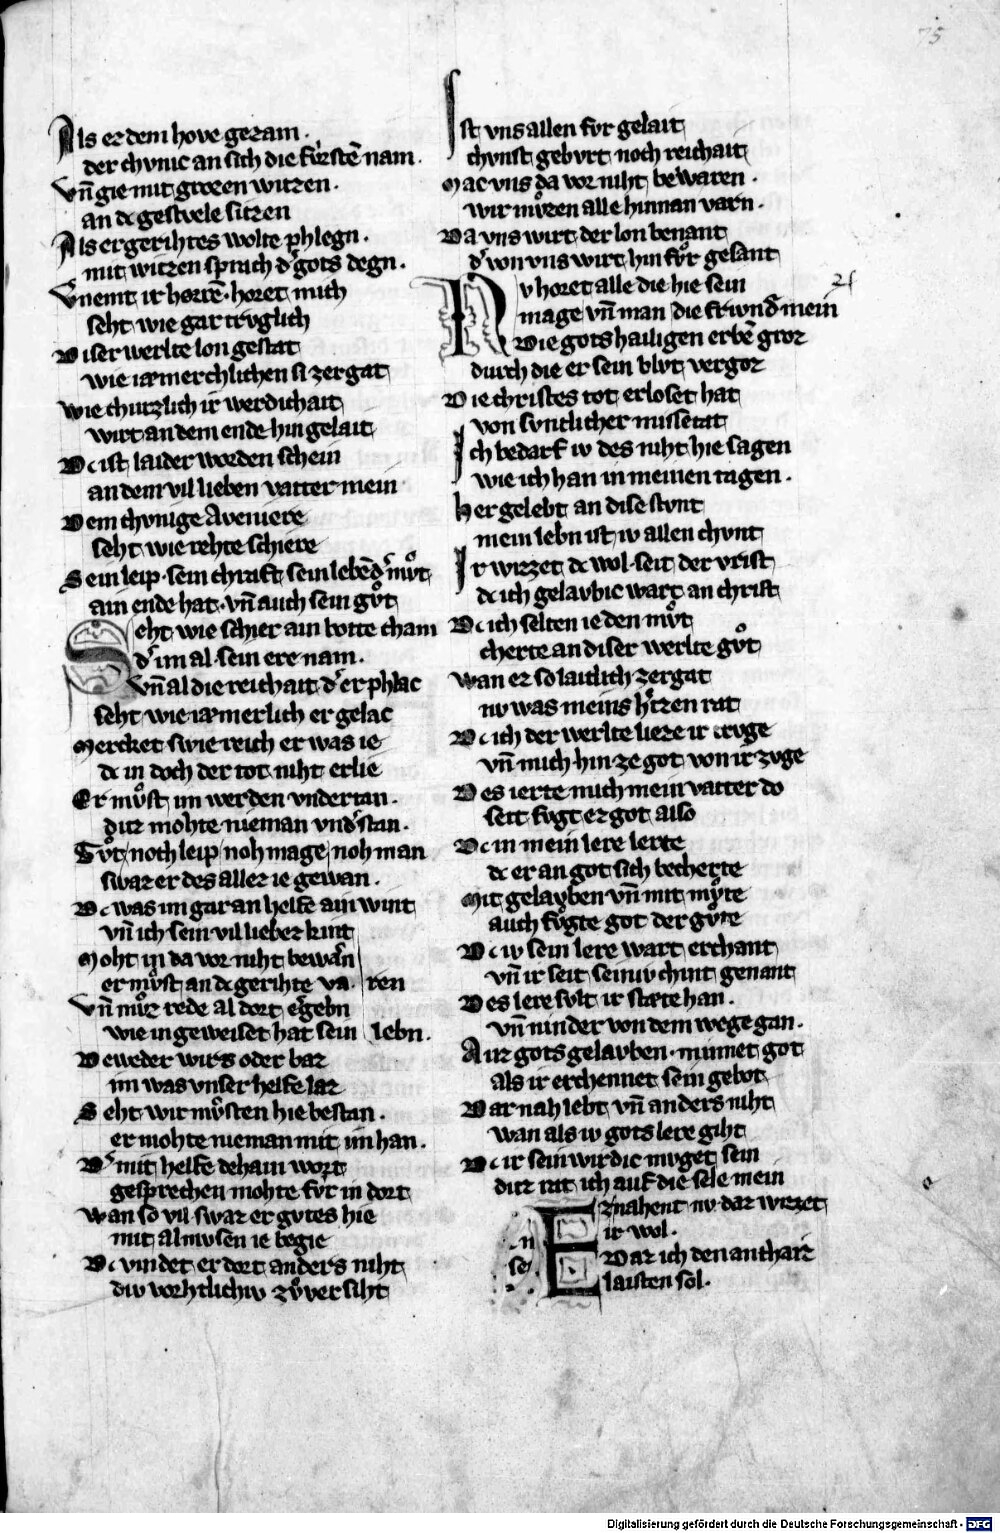 75
Als er dem hove gezam .
der chvnic an sich die fv̊rstē nam .
Vn̄ gie mit grozen witzen .
an dc gestvele sitzen
Als er gerihtes wolte phlegn .
mit witzen sprach d͛ gots degn .
V͛nemt ir herrē . horet mich
seht wie gar trvglich
Diser werlte lon gestat
wie iæmerchlichen si zergat
Wie churzlich ir werdichait
wirt an dem ende hin gelait
Dc ist laider worden schein
an dem vil lieben vatter mein
Dem chvnige Aveniere
seht wie rehte schiere
Sein leip . sein chraft sein lebēd͛ mv̊t
ain ende hat . vn̄ auch sein gv̊t
Seht wie schier ain botte cham
d͛ im al sein ere nam .
Vn̄ al die reichait d͛ er phlac
seht wie iæmerlich er gelac
Mercket swie reich er was ie
dc in doch der tot niht erlie
Er mv̊st im werden vndertan .
ditz mohte nieman vnd͛stan .
Gv̊t noch leip noh mage noh man
swaz er des allez ie gewan .
Dc was im gar an helfe ain wint
vn̄ ich sein vil liebez kint
Moht in da vor niht bewar͛n
er mv̊st an dc gerihte va ren
Vn̄ mv̊z rede al dort e͛gebn
wie in geweiset hat sein lebn .
Deweder wirs oder baz
im was vnser helfe laz
Seht wir mv̊sten hie bestan .
er mohte nieman mit im han .
D͛ mit helfe dehain wort
gesprechen mohte fvr in dort
Wan so vil swaz er gvtes hie
mit almvsen ie begie
Dc vindet er dort anders niht
div vorhtlichiv zv̊versiht
Ist vns allen fvr gelait
chvnst gebvrt noch reichait
Mac vns da vor niht bewaren .
wir mv̊zen alle hinnan varn .
Da vns wirt der lon benant
d͛ von vns wirt hin fv̊r gesant
Nv horet alle die hie sein
mage vn̄ man die friwnd͛ mein
Die gots hailigen erbē groz
durch die er sein blvt vergoz
Die christes tot erloset hat
von svntlicher missetat
Ich bedarf iv des niht hie sagen
wie ich han in meinen tagen .
Her gelebt an dise stvnt
mein lebn ist iv allen chvnt
Ir wizzet dc wol . seit der vrist
dc ich gelavbic wart an christ
Dc ich selten ie den mv̊t
cherte an diser werlte gv̊t
Wan ez so laitlich zergat
nv was meins h͛tzen rat
Dc ich der werlte lieze ir trvge
vn̄ mich hin ze got von ir zvge
Des ierte mich mein vatter do
seit fvgt ez got also
Dc in mein lere lerte
dc er an got sich becherte
Mit gelavben vn̄ mit mv̊te
auch fv̊gte got der gv̊te
Dc iv sein lere wart erchant
vn̄ ir seit seiniv chint genant
Des lere svlt ir stæte han .
vn̄ ninder von dem wege gan .
An gots gelavben . minnet got
als ir erchennet sein gebot
Dar nah lebt vn̄ anders niht
wan als iv gots lere giht
Dc ir sein wirdic mvget sein
ditz rat ich auf die sele mein
Ez nahent nv dar wizzet
ir wol .
Daz ich den anthaiz
laisten sol .
Digitalisierung gefördert durch die Deutsche Forschungsgemeinschaft - DFG